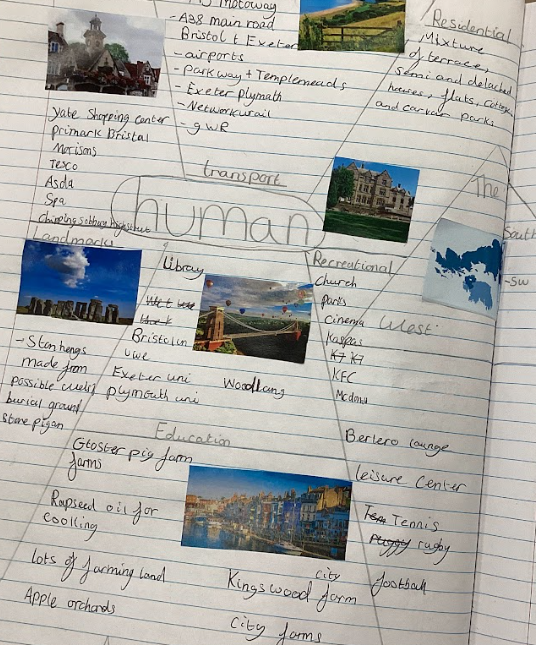 motoway
- A38 main road
Bristol + Exeter
- airports
- Parkway + Templemeads
- Exeter plymath
- Networkurail
- gwR
transport
Residential
Mixture
of terrace,
semi and detached
houses, flats,
and parks
Yate Shopping center
primark Bristol
Morisons
Tesco
Asda
Spa
human
The
South
- SW
West
Landmarks
- Stonhengs
made from
possible
burial ground
Stone
Library
Bristol uni
uwe
Exeter uni
plymouth uni
Woodlang
Education
Recreational
Church
parks
Cinema
Kaspas
KFC
Mcdona
Berlero lounge
leisure Center
Tennis
rugby
football
Gloster pig farm
farms
Rapseed oil for
coolling
lots of farming land
Apple orchards
Kingswood city farm
City farms